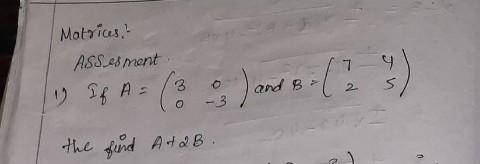 Matrices:-
ASSesment.
1) If A = ( 3 0 ) and B = ( 7 4 )
( 0 -3 ) ( 2 5 )
the find A+2B.